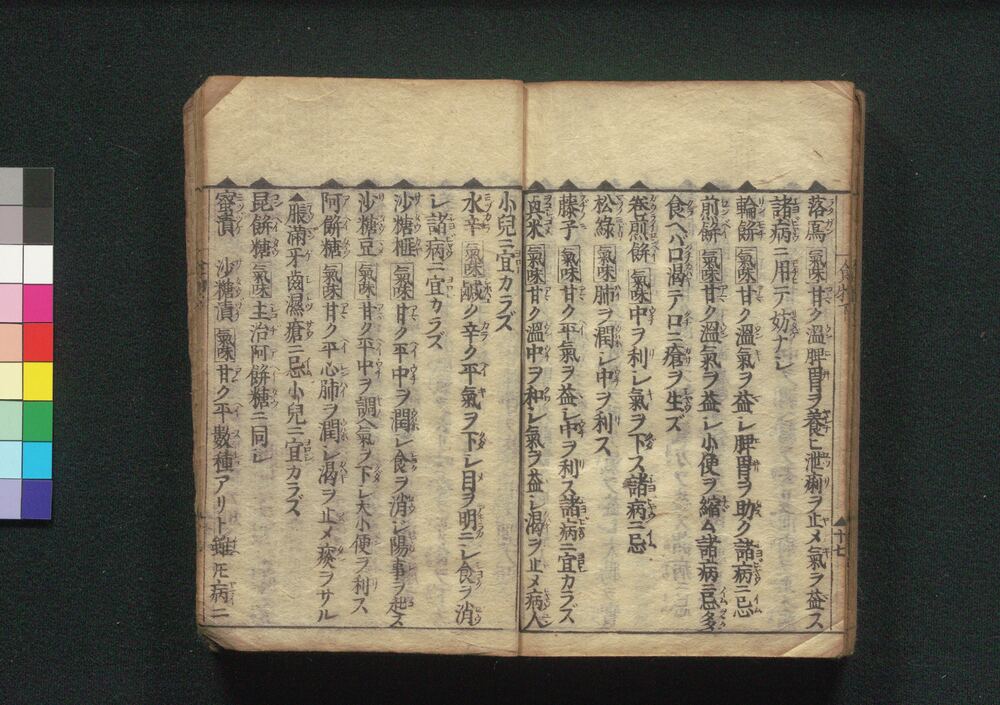 落鳫 氣味甘ク温脾胃ヲ養ヒ泄痢ヲ止メ氣ヲ益ス
諸病ニ用テ妨ナシ
輪餅 氣味甘ク温氣ヲ益シ脾胃ヲ助ク諸病ニ忌
煎餅 氣味甘ク温氣ヲ益シ小便ヲ縮ム諸病ニ忌多
食ヘバロ渇テ口ニ瘡ヲ生ズ
卷煎餅 氣味中ヲ利シ氣ヲ下ス諸病ニ忌
松緑 氣味肺ヲ潤シ中ヲ利ス
藤子 氣味甘ク平氣ヲ益シ中ヲ利ス諸病ニ宜カラズ
奥米 氣味甘ク温中ヲ和シ氣ヲ益シ渇ヲ止メ病人
小兒ニ宜カラズ
水辛 氣味鹹ク辛ク平氣ヲ下シ目ヲ明ニシ食ヲ消
シ諸病ニ宜カラズ
沙糖榧 氣味甘ク平中ヲ潤シ食ヲ消シ陽事ヲ起ス
沙糖豆 氣味甘ク平中ヲ調ヘ氣ヲ下シ大小便ヲ利ス
阿餅糖 氣味甘ク平心肺ヲ潤シ渇ヲ止メ痰ヲサル
脹滿牙齒濕瘡ニ忌小兒ニ宜カラズ
昆餅糖 氣味主治阿餅糖ニ同シ
蜜漬 沙糖漬 氣味甘ク平數種アリト雖𪜈病ニ
十七